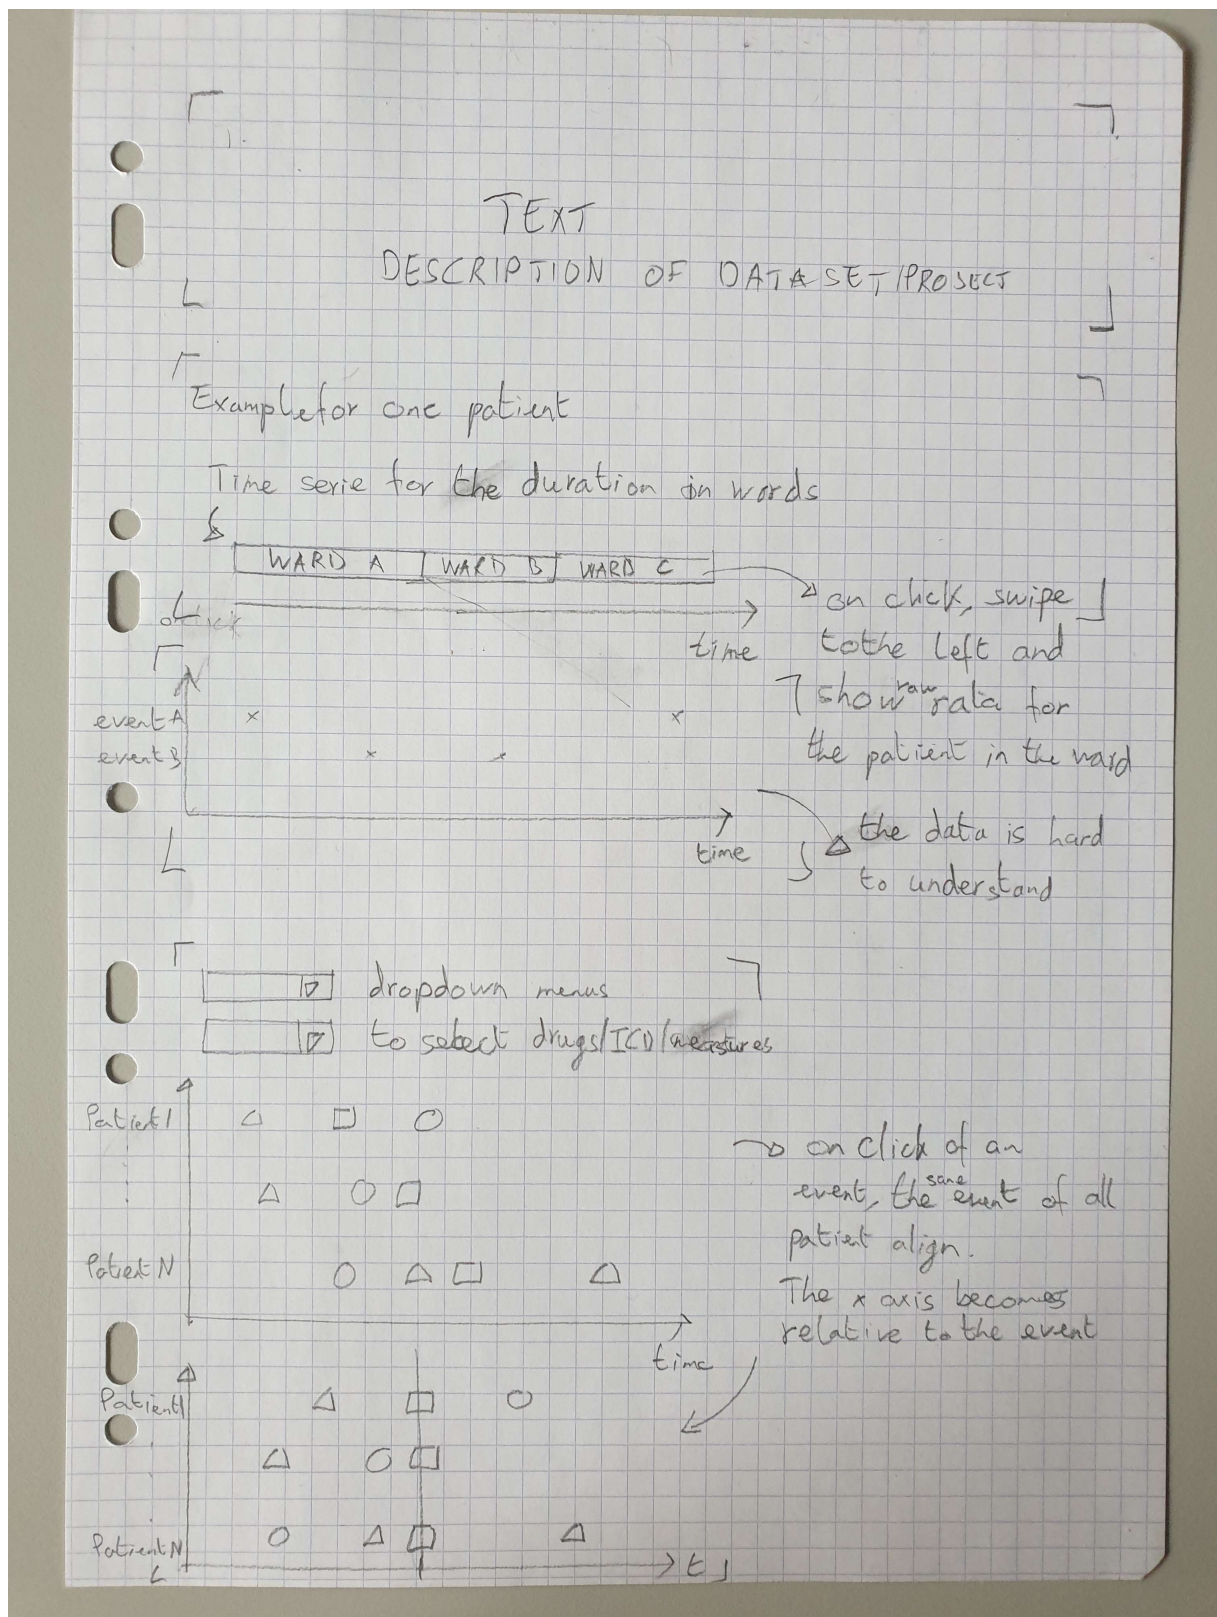 TEXT
DESCRIPTION OF DATASET/PROJECT
Example for one patient
Time serie for the duration in words
WARD A WARD B WARD C
time
on click, swipe
to the left and
show raw rata for
the patient in the ward
event A
event B
time
the data is hard
to understand
dropdown menus
to select drugs/ICD/measures
Patient 1
Patient N
time
on click of an
event, the same event of all
patient align.
The x axis becomes
relative to the event
Patient 1
Patient N
t